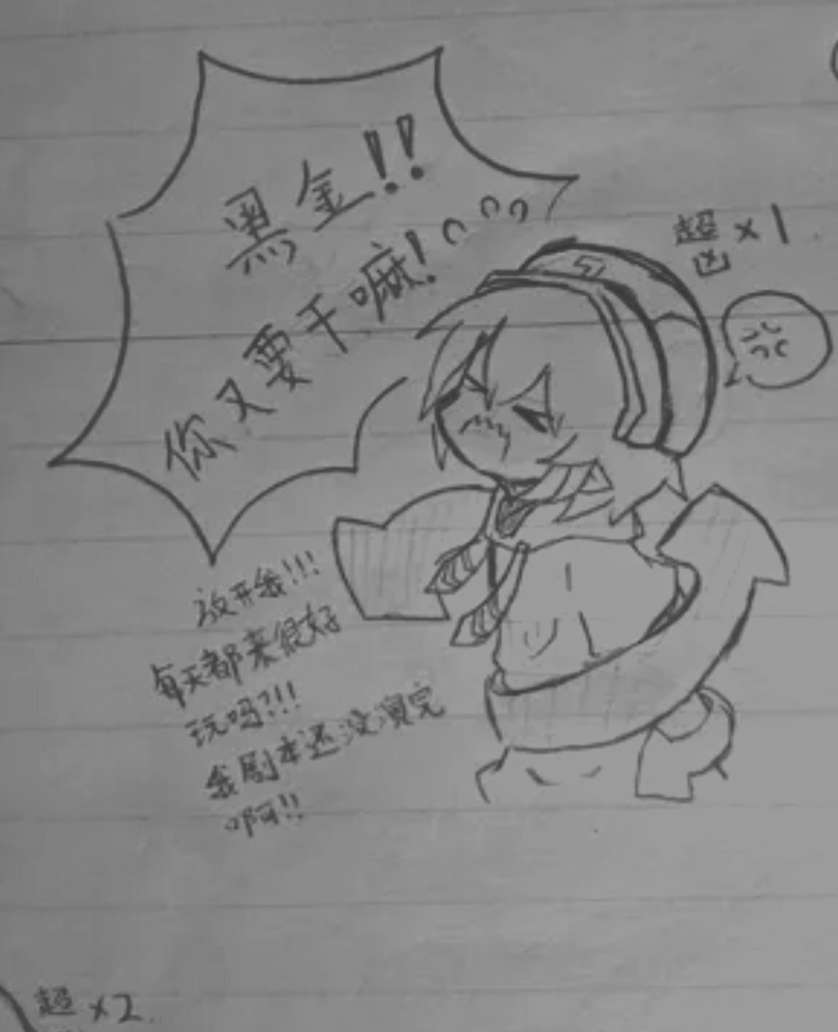 黑金!!
你又要干嘛!
超凶 x1
放开我!!!
每天都来很好
玩吗?!!
我剧本还没演完
啊!!
超 x2